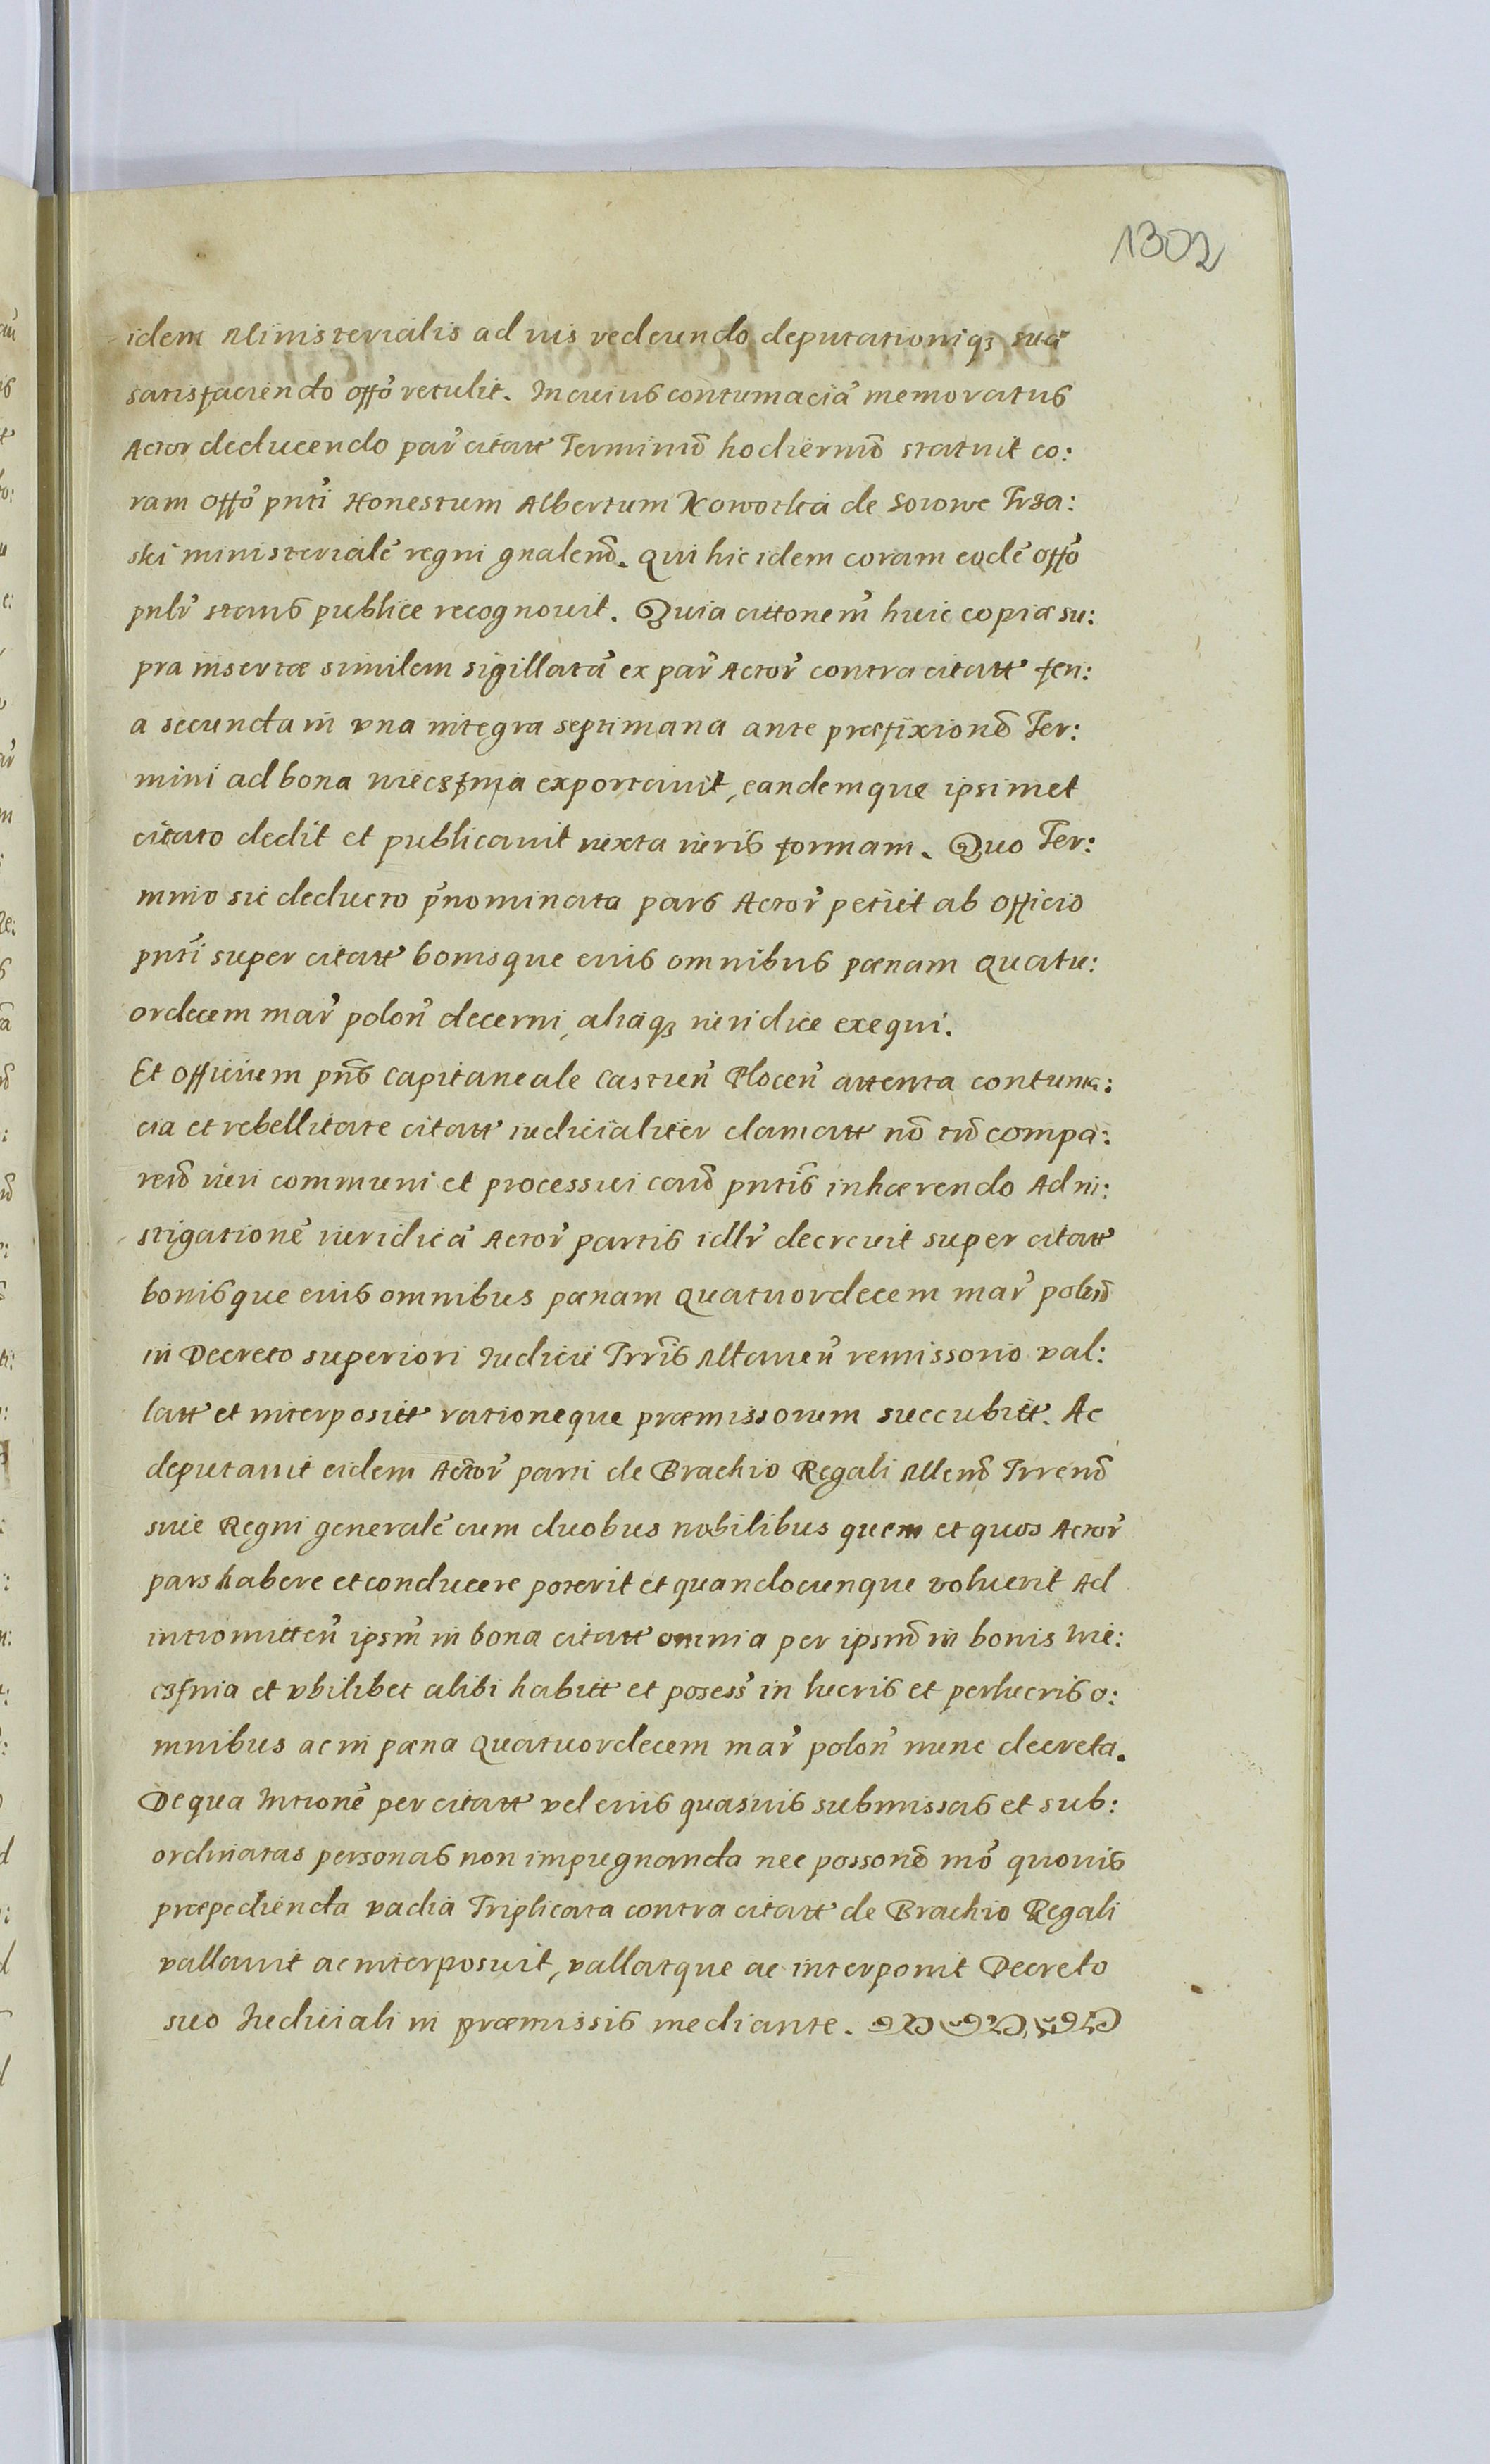 1302
idem Ministerialis ad ius redeundo deputationiq; suæ
satisfaciendo offō retulit. In cuius contumaciā memoratus
Actor deducendo par̃ citatt Terminū hodiernū statuit co:
ram Offō pnti Honestum Albertum Nowothka de Sorowe Trza:
ski ministerialē regni gnalem̃. Qui hic idem coram eodē offō
pnlr̃ stans publice recognouit. Quia citt̃onem̃ huic copiæ su:
pra insertæ similem sigillatā ex par̃ Actor̃ contra citatt feri:
a secunda in vna integra septimana ante præfixionē Ter:
mini ad bona exportauit, eandemque ipsimet
citato dedit et publicauit iuxta iuris formam. Quo Ter:
mino sic deducto p̃nominata pars Actor̃ petiit ab Officio
pnti super citatt bonisque eius omnibus pænam Quatu:
ordecem mar̃ polon̄ decerni, aliaq; iuridice exequi.
Et Officium pñs Capitaneale Castren̄ Plocen̄ attenta contuma:
cia et rebellitate citatt iudicialiter clamatt nō tñ compa:
reñ iuri communi et processui cauæ pntis inhærendo Ad in:
stigationē iuridicā Actor̃ partis idlr̃ decreuit super citatt
bonisque eius omnibus pænam Quatuordecem mar̃ polon̄
in Decreto superiori Iudicii Trr̃is Mlauen̄ remissorio val:
latt et interpositt rationeque præmissorum succubitt. Ac
deputauit eidem Actor̃ parti de Brachio Regali Mlem̃ Trrem̃
siue Regni generalē cum duobus nobilibus quem et quos Actor̃
pars habere et conducere poterit et quandocunque voluerit Ad
intromitten̄ ipsm̃ in bona citatt omnia per ipsm̃ in bonis Wie:
czfnia et vbilibet alibi habitt et posess̃ in lucris et perlucris o:
mnibus ac in pæna Quatuordecem mar̃ polon̄ nunc decreta.
De qua Intronē per citatt vel eius quasuis submissas et sub:
ordinatas personas non impugnanda nec possonē mō quouis
præpedienda vadia Triplicata contra citatt de Brachio Regali
vallauit ac interposuit, vallatque ac interponit Decreto
suo Iudiciali in præmissis mediante.